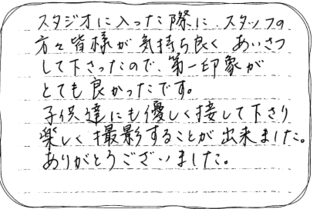 スタジオに入った際に、スタッフの
方々皆様が気持ち良く あいさつ
して下さったので、第一印象が
とても良かったです。
子供達にも優しく接して下さり
楽しく撮影することが出来ました。
ありがとうございました。